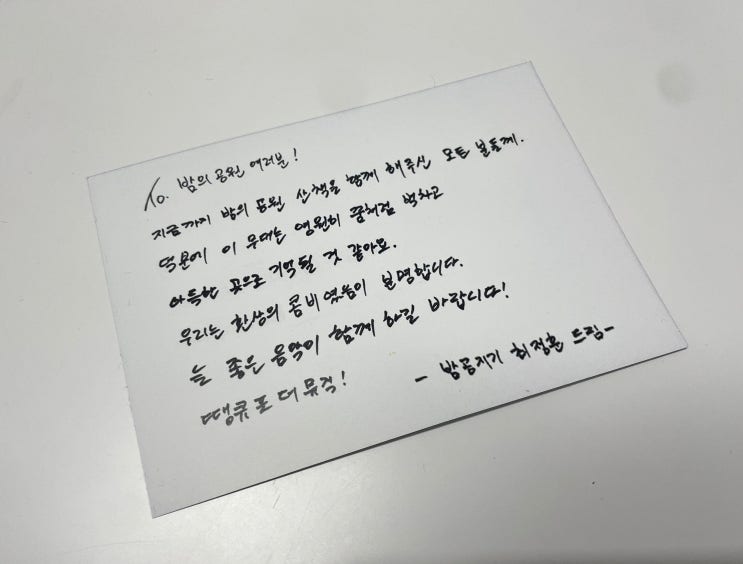 To. 밤의 공원 여러분!
지금까지 밤의 공원 산책을 함께 해주신 모든 분들께.
덕분에 이 무대는 영원히 꿈처럼 벅차고
아득한 곳으로 기억될 것 같아요.
우리는 환상의 콤비였음이 분명합니다.
늘 좋은 음악이 함께 하길 바랍니다!
땡큐 포 더 뮤직!
- 밤공지기 최정훈 드림-